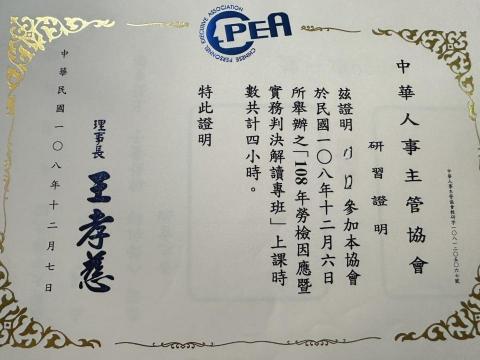 CHINESE PERSONNEL EXECUTIVE ASSOCIATION
CPEA
中華人事主管協會
研習證明
茲證明 參加本協會
於民國一〇八年十二月六日
所舉辦之「108年勞檢因應暨
實務判決解讀專班」上課時
數共計四小時。
特此證明
理事長 王孝慈
中華民國一〇八年十二月七日